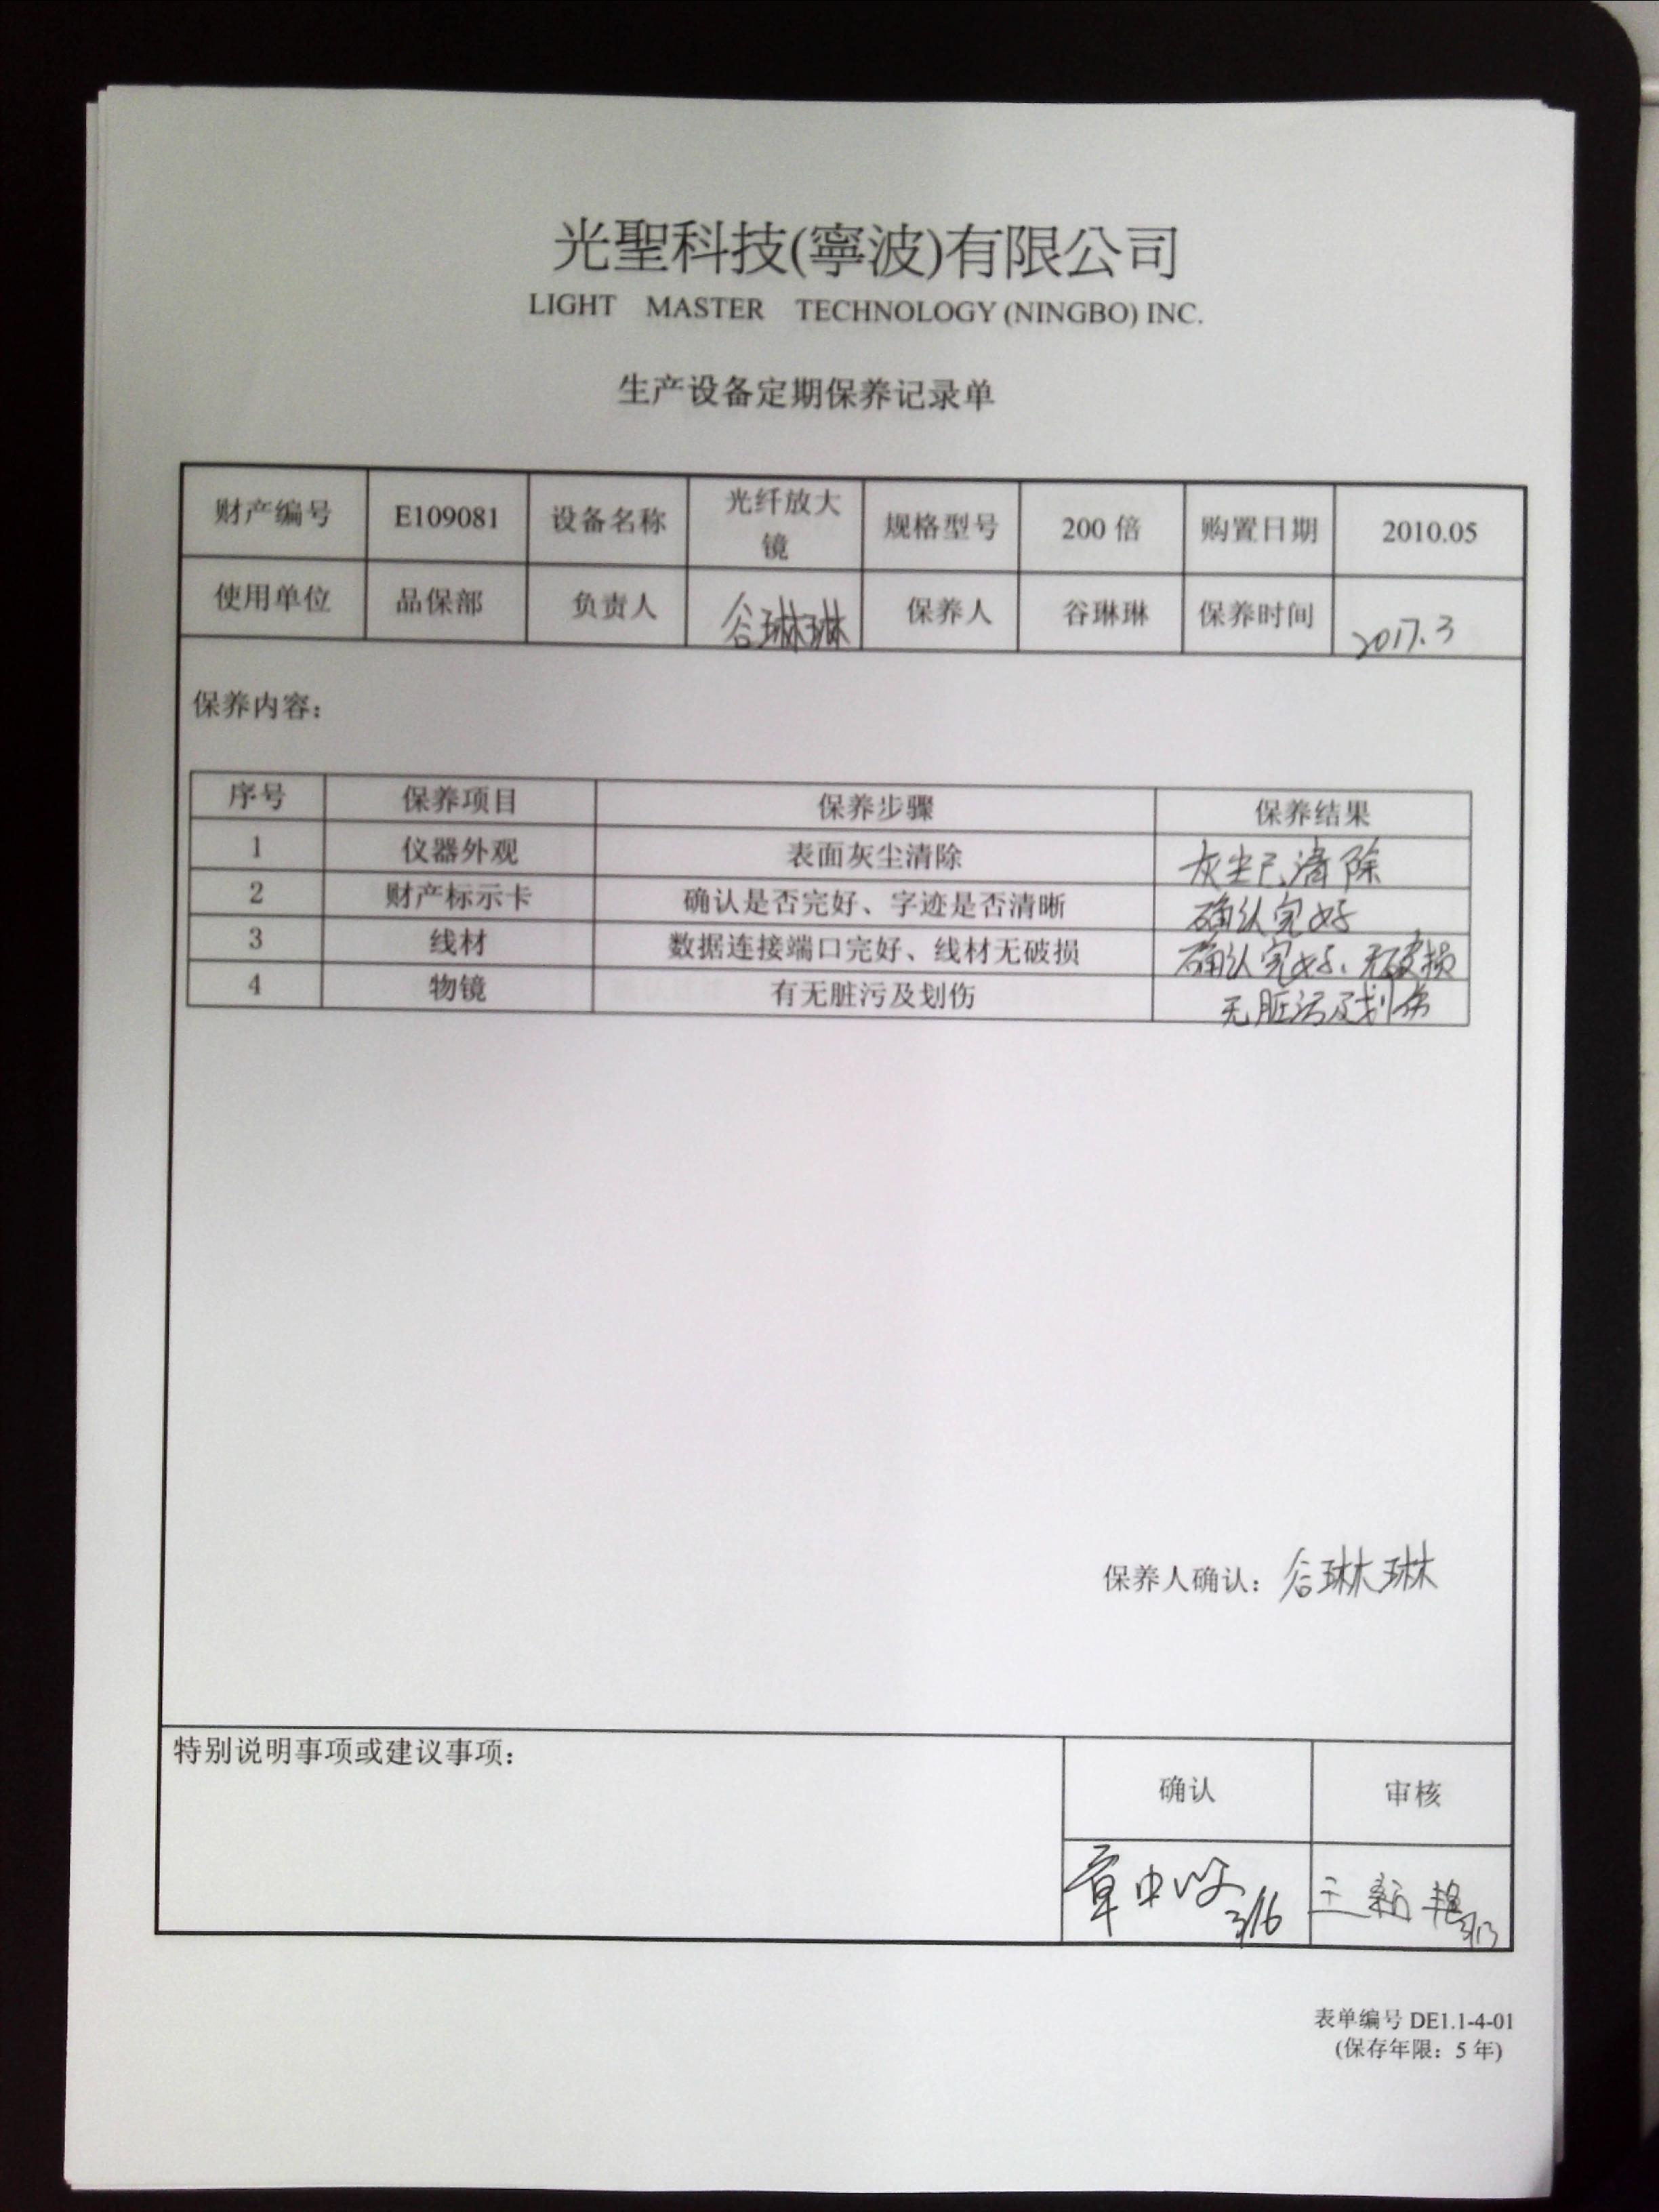 光聖科技(寧波)有限公司
LIGHT MASTER TECHNOLOGY (NINGBO) INC.
生产设备定期保养记录单
财产编号 E109081 设备名称 光纤放大镜 规格型号 200 倍 购置日期 2010.05
使用单位 品保部 负责人 谷琳琳 保养人 谷琳琳 保养时间 2017.3
保养内容：
序号 保养项目 保养步骤 保养结果
1 仪器外观 表面灰尘清除 灰尘已清除
2 财产标示卡 确认是否完好、字迹是否清晰 确认完好
3 线材 数据连接端口完好、线材无破损 确认完好、无破损
4 物镜 有无脏污及划伤 无脏污及划伤
保养人确认：谷琳琳
特别说明事项或建议事项：
确认 审核
章中 3/6 王新艳 3/13
表单编号 DE1.1-4-01
(保存年限：5 年)